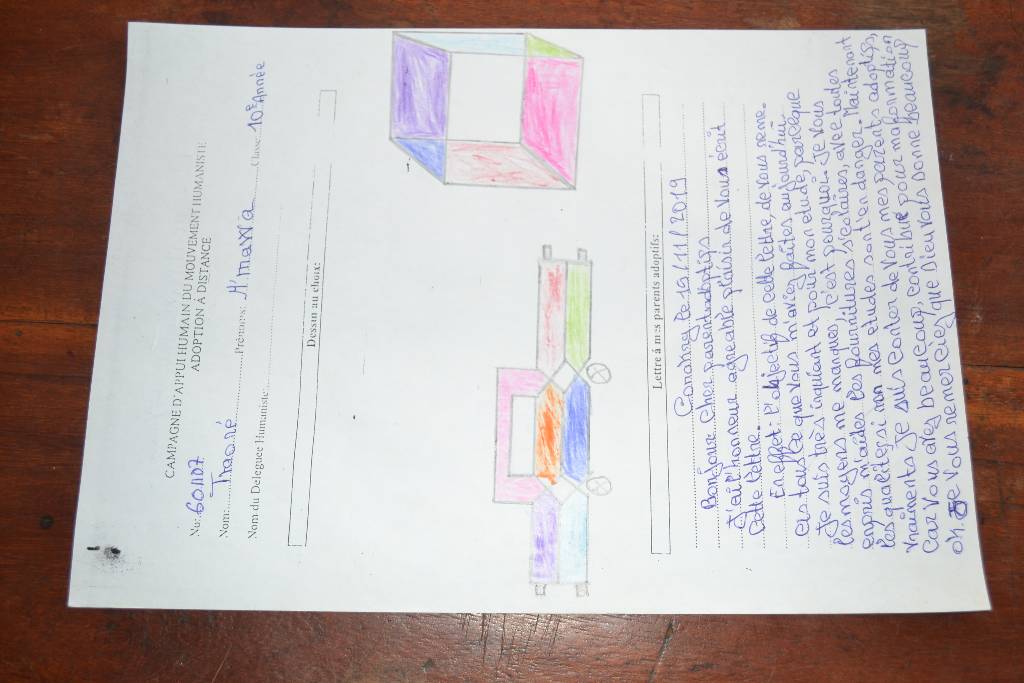 CAMPAGNE D'APPUI HUMAIN DU MOUVEMENT HUMANISTE
ADOPTION À DISTANCE
No: 601107
Nom: Traoré Prénoms: M'mawa Classe: 10e Année
Nom du Deleguee Humaniste
Dessin au choix:
Lettre à mes parents adoptifs:
Conakry le 15/11/2019
Bonjour Cher parent adoptifs
J'ai l'honneur agreable plaisir de vous écrit
Cette lettre.
En effet: l'objectif de cette lettre, de vous reme-
cis tous ce que vous m'aviez faites aujourd'hui.
Je suis très inquient et pour mon etude, parceque
les moyens me manques, c'est pourquoi. Je vous
enpris m'aides les fournitures scolaires, avec toutes
les qualités, si non mes etudes sont en danger. Maintenant
vraiments Je suis conter de vous mes parents adoptifs,
Car vous aves beaucoup, contribué pour ma formation
oh. Je vous remercies, que Dieu vous donne beaucoup